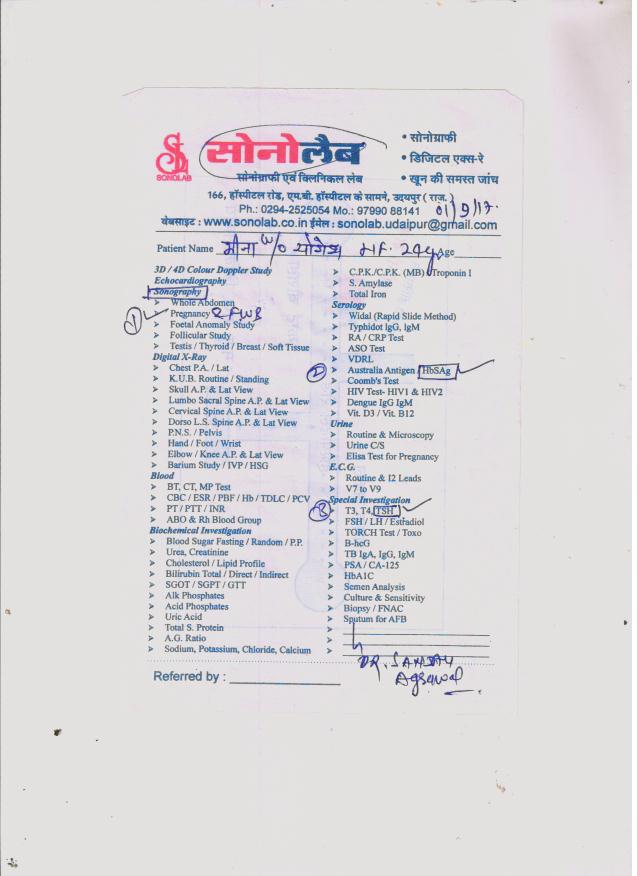 SONOLAB
सोनोलैब
सोनोग्राफी एवं क्लिनिकल लेब
• सोनोग्राफी
• डिजिटल एक्स-रे
• खून की समस्त जांच
166, हॉस्पीटल रोड, एम.बी. हॉस्पीटल के सामने, उदयपुर ( राज. )
Ph.: 0294-2525054 Mo.: 97990 88141 01/9/17.
वेबसाइट : www.sonolab.co.in ईमेल : sonolab.udaipur@gmail.com
Patient Name मीना w/o योगेश 24y Age
3D / 4D Colour Doppler Study
Echocardiography
Sonography
➤ Whole Abdomen
① ➤ Pregnancy & FWB
➤ Foetal Anomaly Study
➤ Follicular Study
➤ Testis / Thyroid / Breast / Soft Tissue
Digital X-Ray
➤ Chest P.A. / Lat
➤ K.U.B. Routine / Standing
➤ Skull A.P. & Lat View
➤ Lumbo Sacral Spine A.P. & Lat View
➤ Cervical Spine A.P. & Lat View
➤ Dorso L.S. Spine A.P. & Lat View
➤ P.N.S. / Pelvis
➤ Hand / Foot / Wrist
➤ Elbow / Knee A.P. & Lat View
➤ Barium Study / IVP / HSG
Blood
➤ BT, CT, MP Test
➤ CBC / ESR / PBF / Hb / TDLC / PCV
➤ PT / PTT / INR
➤ ABO & Rh Blood Group
Biochemical Investigation
➤ Blood Sugar Fasting / Random / P.P.
➤ Urea, Creatinine
➤ Cholesterol / Lipid Profile
➤ Bilirubin Total / Direct / Indirect
➤ SGOT / SGPT / GTT
➤ Alk Phosphates
➤ Acid Phosphates
➤ Uric Acid
➤ Total S. Protein
➤ A.G. Ratio
➤ Sodium, Potassium, Chloride, Calcium
➤ C.P.K./C.P.K. (MB) Troponin I
➤ S. Amylase
➤ Total Iron
Serology
➤ Widal (Rapid Slide Method)
➤ Typhidot IgG, IgM
➤ RA / CRP Test
➤ ASO Test
➤ VDRL
② ➤ Australia Antigen HbSAg
➤ Coomb's Test
➤ HIV Test- HIV1 & HIV2
➤ Dengue IgG IgM
➤ Vit. D3 / Vit. B12
Urine
➤ Routine & Microscopy
➤ Urine C/S
➤ Elisa Test for Pregnancy
E.C.G.
➤ Routine & I2 Leads
➤ V7 to V9
Special Investigation
③ ➤ T3, T4, TSH
➤ FSH / LH / Estradiol
➤ TORCH Test / Toxo
➤ B-hcG
➤ TB IgA, IgG, IgM
➤ PSA / CA-125
➤ HbA1C
➤ Semen Analysis
➤ Culture & Sensitivity
➤ Biopsy / FNAC
➤ Sputum for AFB
DR. SANJAY
Agrawal
Referred by :